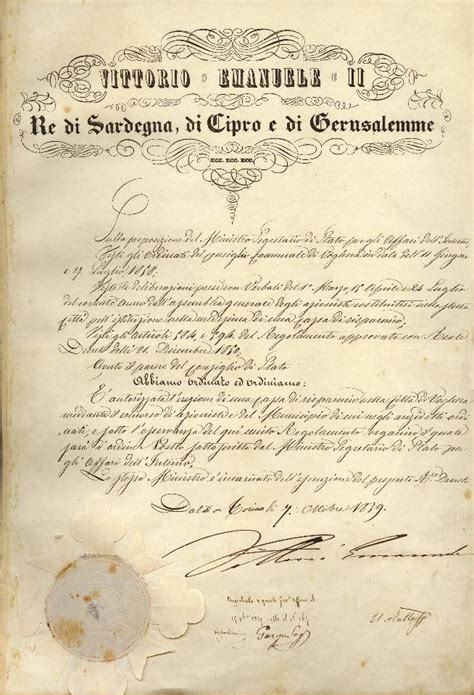 VITTORIO EMANUELE II
Re di Sardegna, di Cipro e di Gerusalemme
ECC. ECC. ECC.
Sulla proposizione del Ministro Segretario di Stato per gli Affari dell'Interno
Visti gli Ordinati del Consiglio Comunale di Voghera in data dell' 11 Giugno
e 27 Luglio 1858.
Viste le deliberazioni prese con Verbali del 1° Marzo, 15 Aprile e 24 Luglio
del corrente Anno dell'assemblea generale degli azionisti costituitisi nella stessa
Città per l'istituzione nella medesima di una Cassa di risparmio
Visti gli articoli 524, e 594 del Regolamento approvato con Reale
Decreto delli 21 Dicembre 1850.
Udito il parere del Consiglio di Stato
Abbiamo ordinato ed ordiniamo:
È autorizzata l'erezione di una Cassa di risparmio nella Città di Voghera
mediante il concorso di azionisti e del Municipio di cui negli anzidetti ordi
nati, e sotto l'osservanza del qui unito Regolamento organico il quale
sarà d'ordine Nostro sottoscritto dal Ministro Segretario di Stato per
gli Affari dell'Interno.
Lo stesso Ministro è incaricato dell'esecuzione del presente R. Decreto
Dat. a Torino li 7. Ottobre 1859.
Vittorio Emanuele
U Rattazzi